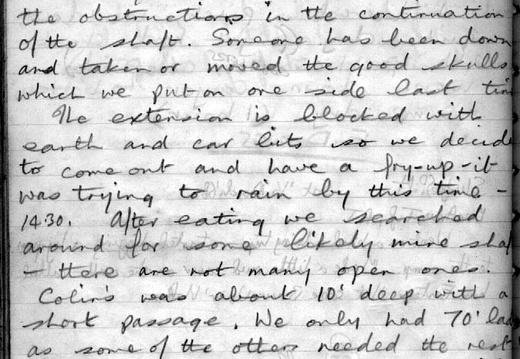 the obstructions in the continuation
of the shaft. Someone has been down
and taken or moved the good skulls
which we put on one side last tim
The extension is blocked with
earth and car bits so we decid
to come out and have a fry-up - it
was trying to rain by this time -
1430. After eating we searched
around for some likely mine shaf
- there are not many open ones.
Colin's was about 10' deep with a
short passage. We only had 70' lad
as some of the others needed the rest